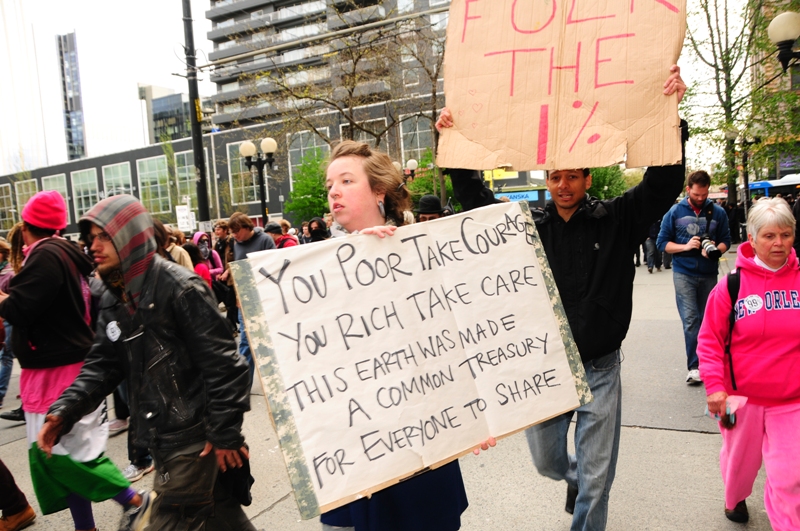 FOLK
THE
1%
YOU POOR TAKE COURAGE
YOU RICH TAKE CARE
THIS EARTH WAS MADE
A COMMON TREASURY
FOR EVERYONE TO SHARE
NEW ORLE
99